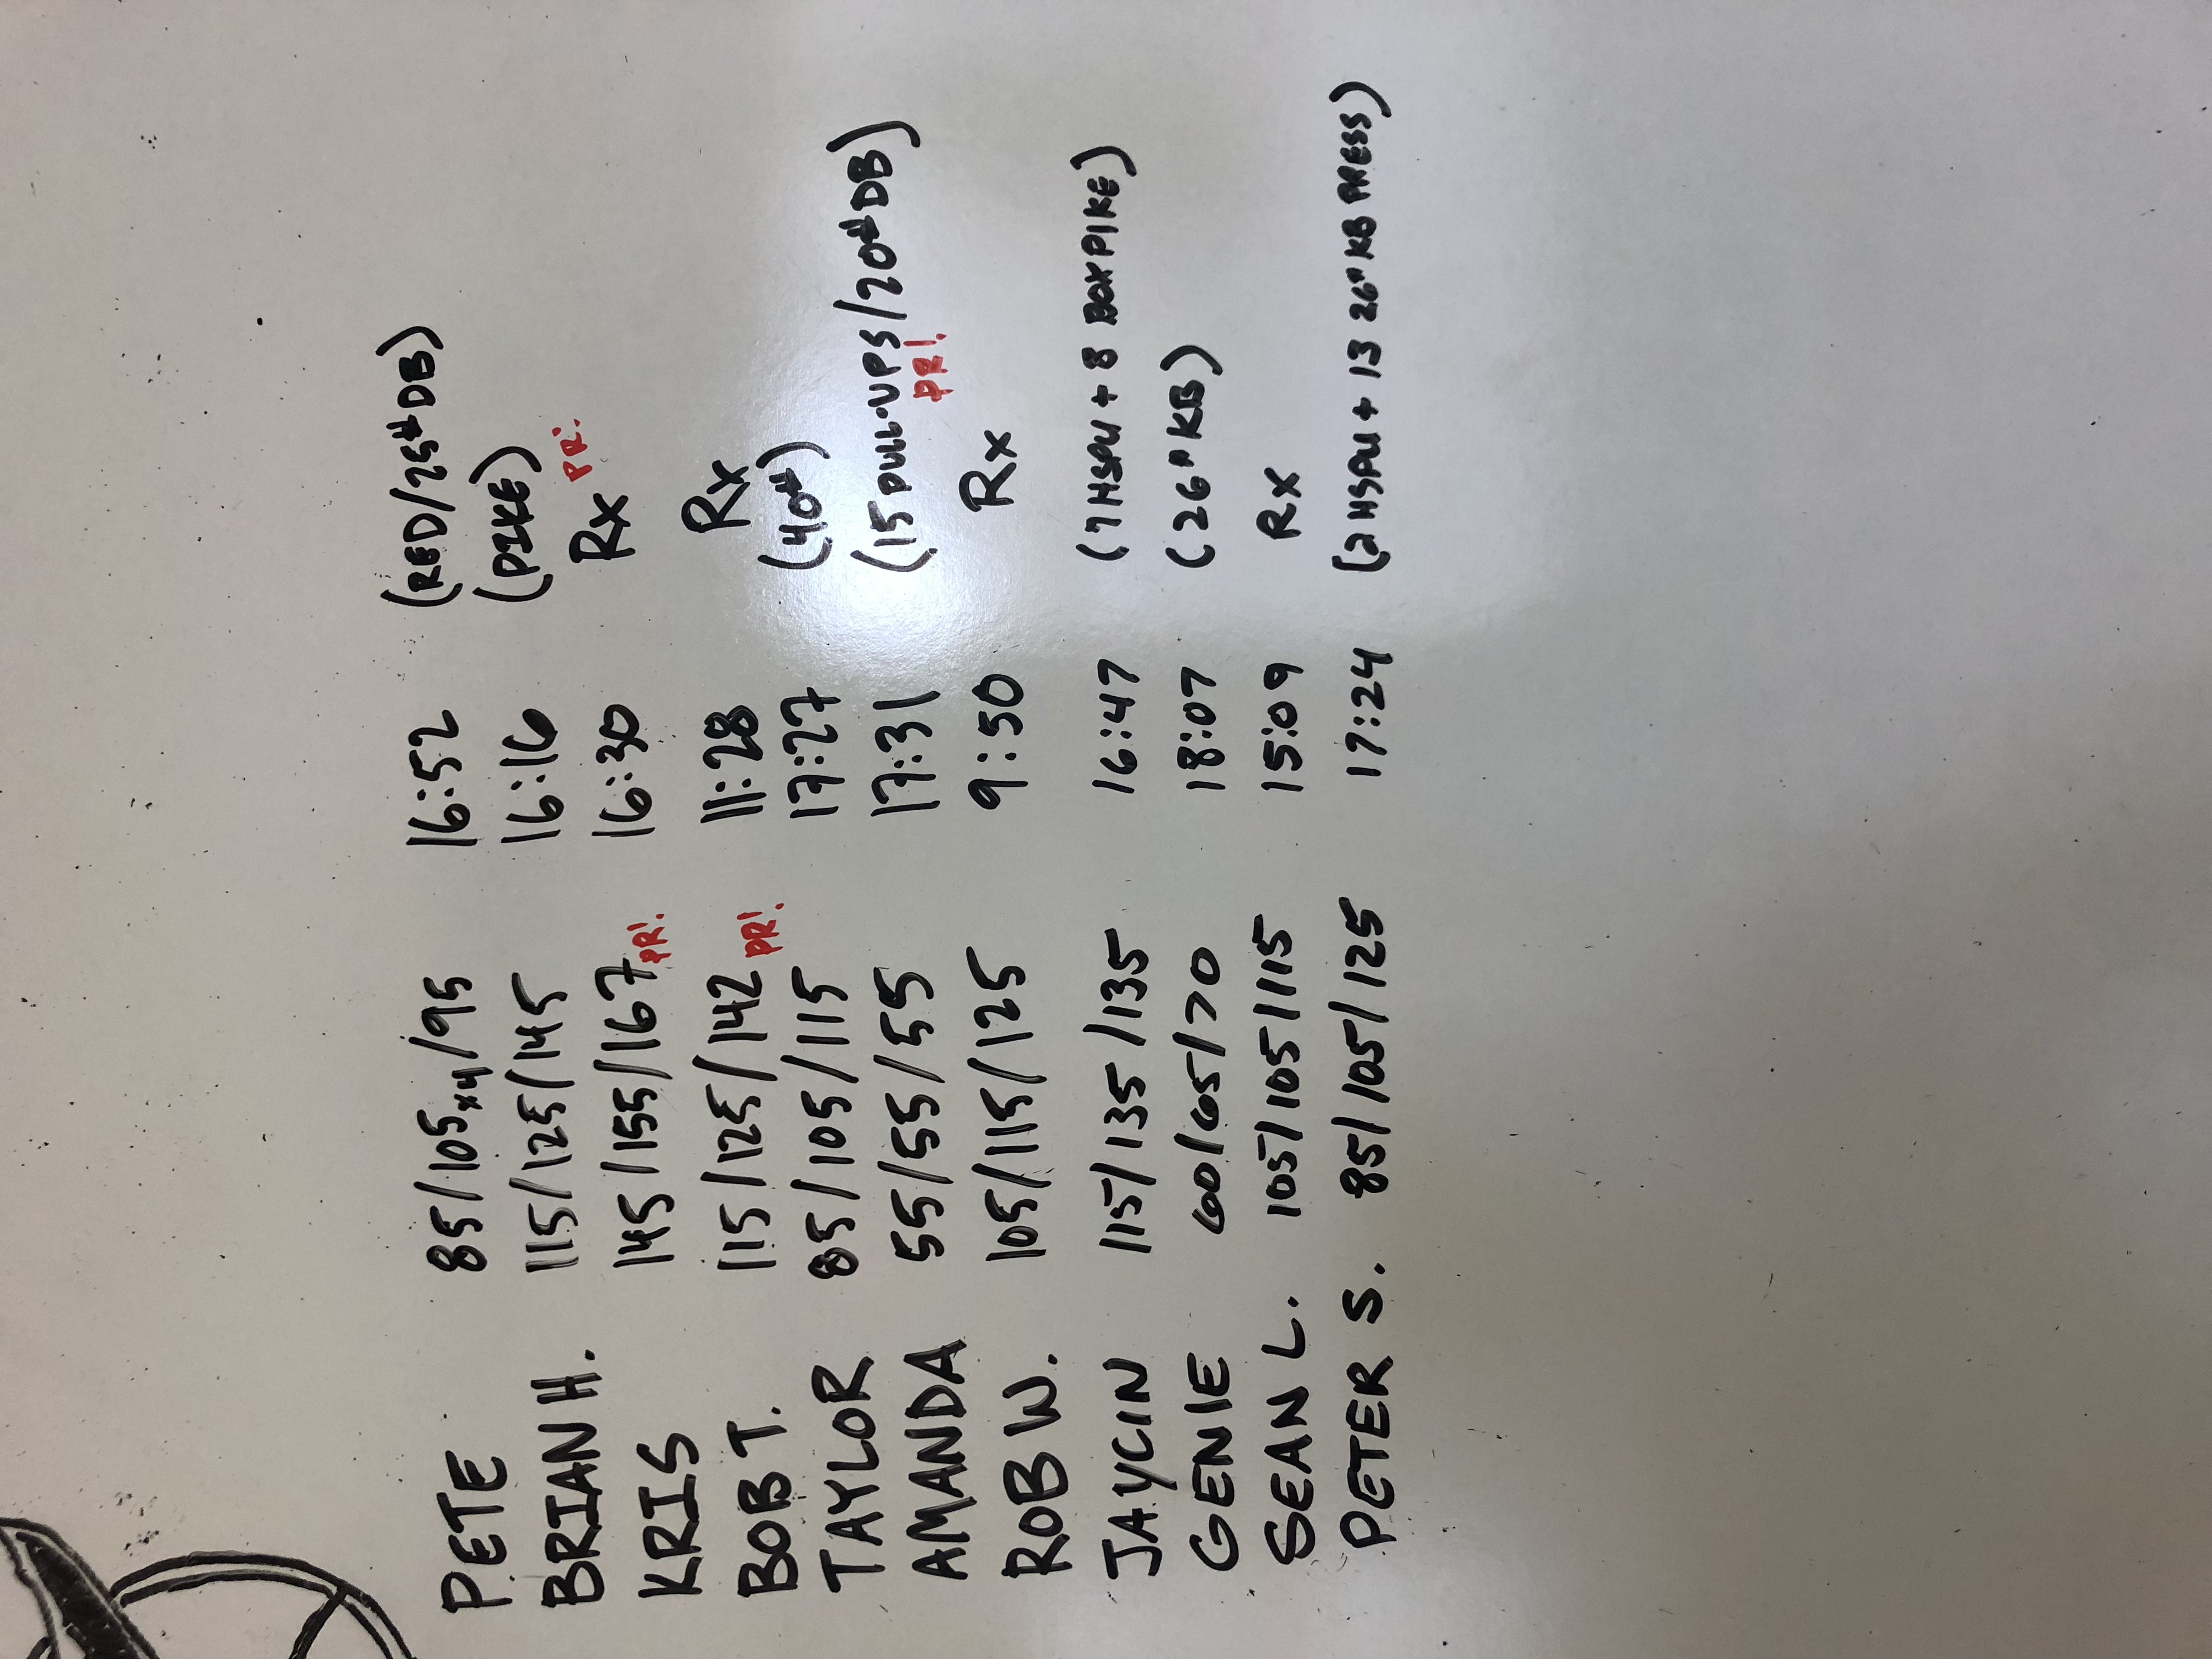 PETE 85/105x4/95 16:52 (RED/25# DB)
BRIAN H. 115/125/145 16:16 (PIKE)
KRIS 145/155/167 PR! 16:30 Rx PR!
BOB T. 115/125/142 PR! 11:28 Rx
TAYLOR 85/105/115 17:27 (40#)
AMANDA 55/55/55 17:31 (15 PULL-UPS/20# DB)
ROB W. 105/115/125 9:50 Rx PR!
JAYCIN 115/135/135 16:47 (7 HSPU + 8 BOX PIKE)
GENIE 60/65/70 18:07 (26# KB)
SEAN L. 105/105/115 15:09 Rx
PETER S. 85/105/125 17:24 (2 HSPU + 13 26# KB PRESS)